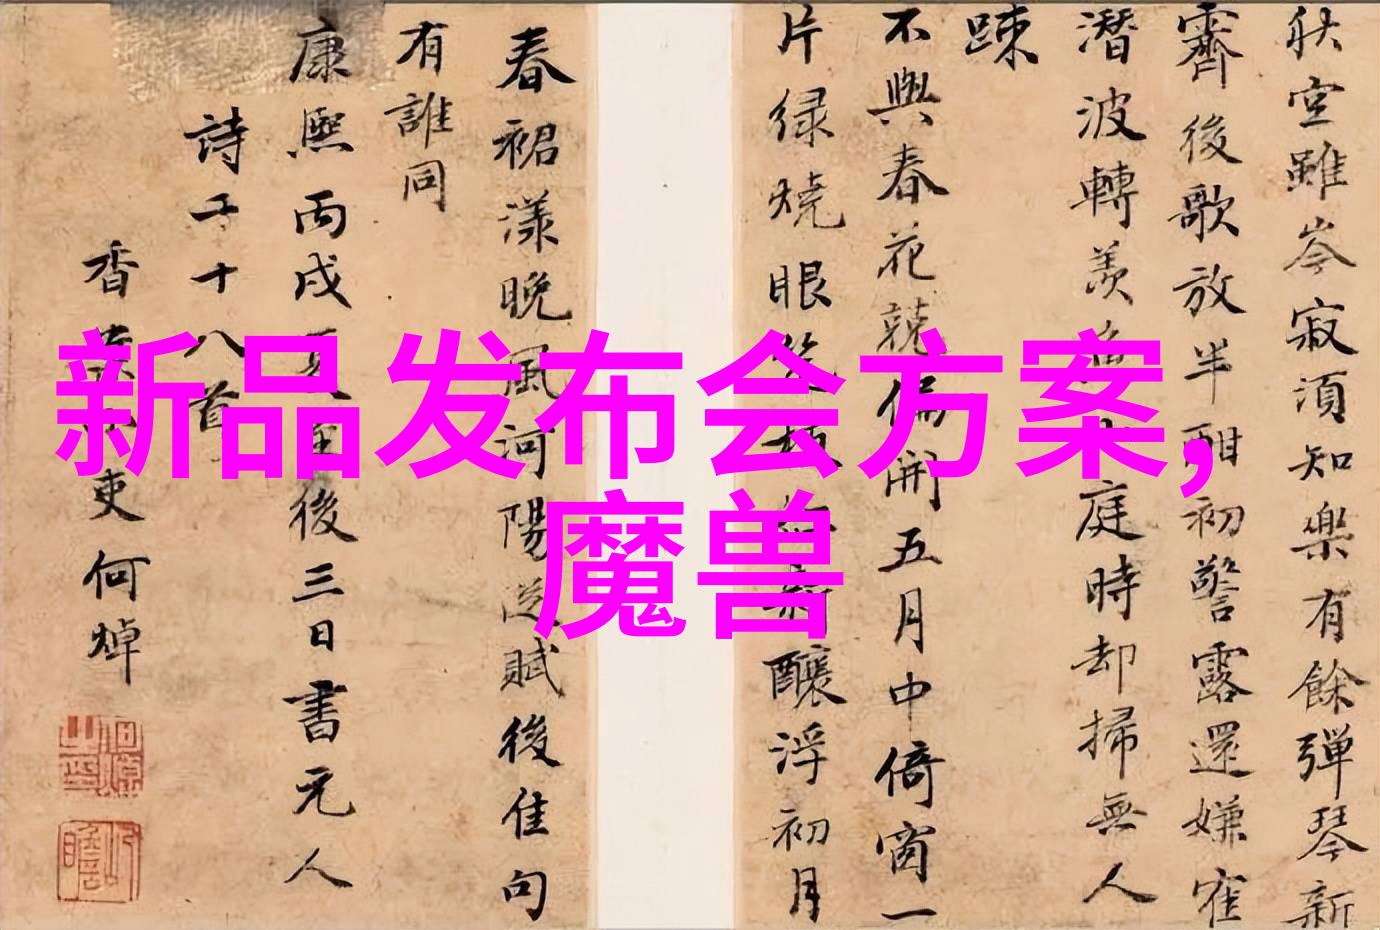 秋空雖岑寂須知樂有餘彈琴新
霽後歌放半酣初警露還嫌窄
潛波轉羨魚 庭時却掃無人
踈
不與春花競偏開五月中倚窗一
片绿燒眼 浮初月
春裙漾晚風河陽 賦後佳句
有誰同
康熙丙戌 後三日書元人
詩二十八首
香 吏何焯
新品发布会方案,
魔兽